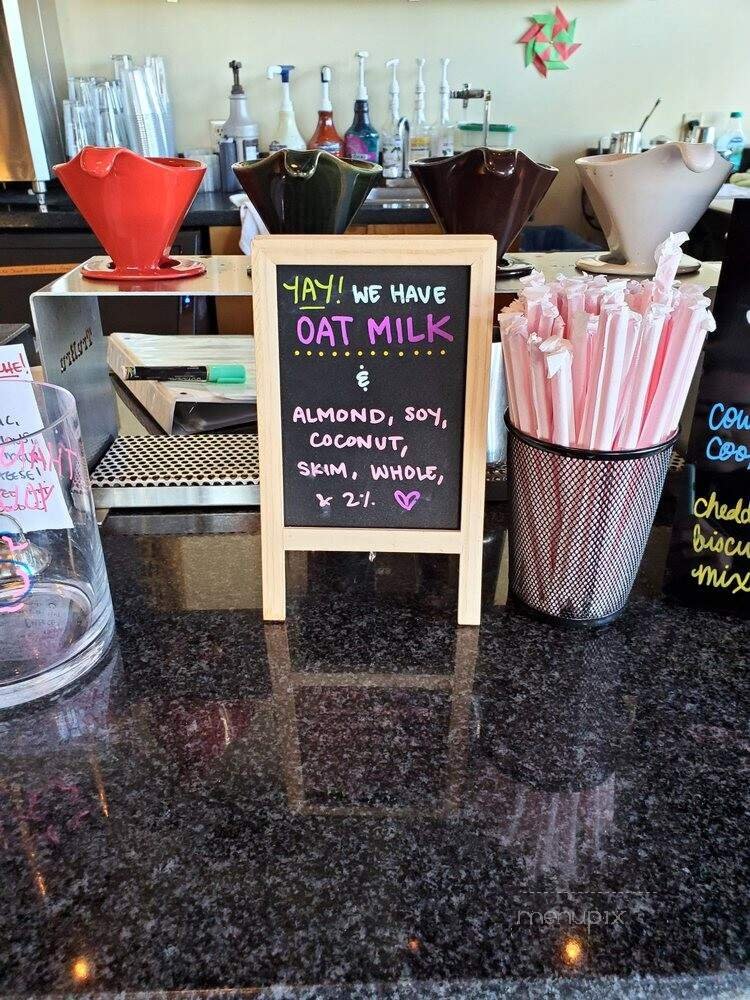 YAY! WE HAVE
OAT MILK
&
ALMOND, SOY,
COCONUT,
SKIM, WHOLE,
& 2% ♥
COO
chedd
Biscu
mix
menupix